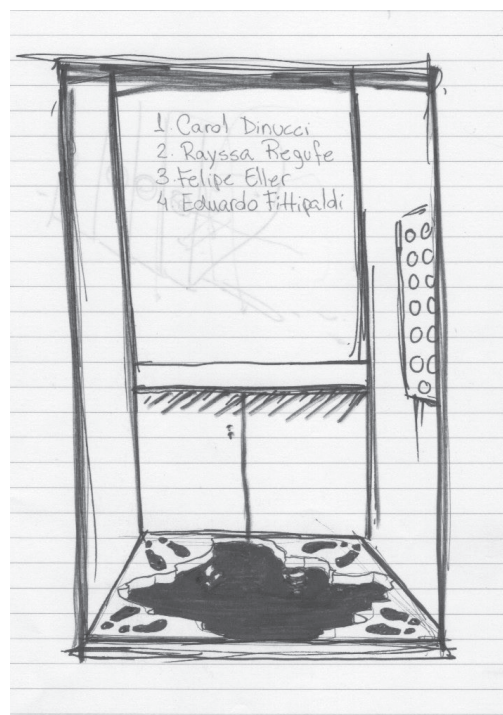 1. Carol Dinucci
2. Rayssa Regufe
3. Felipe Eller
4. Eduardo Fittipaldi